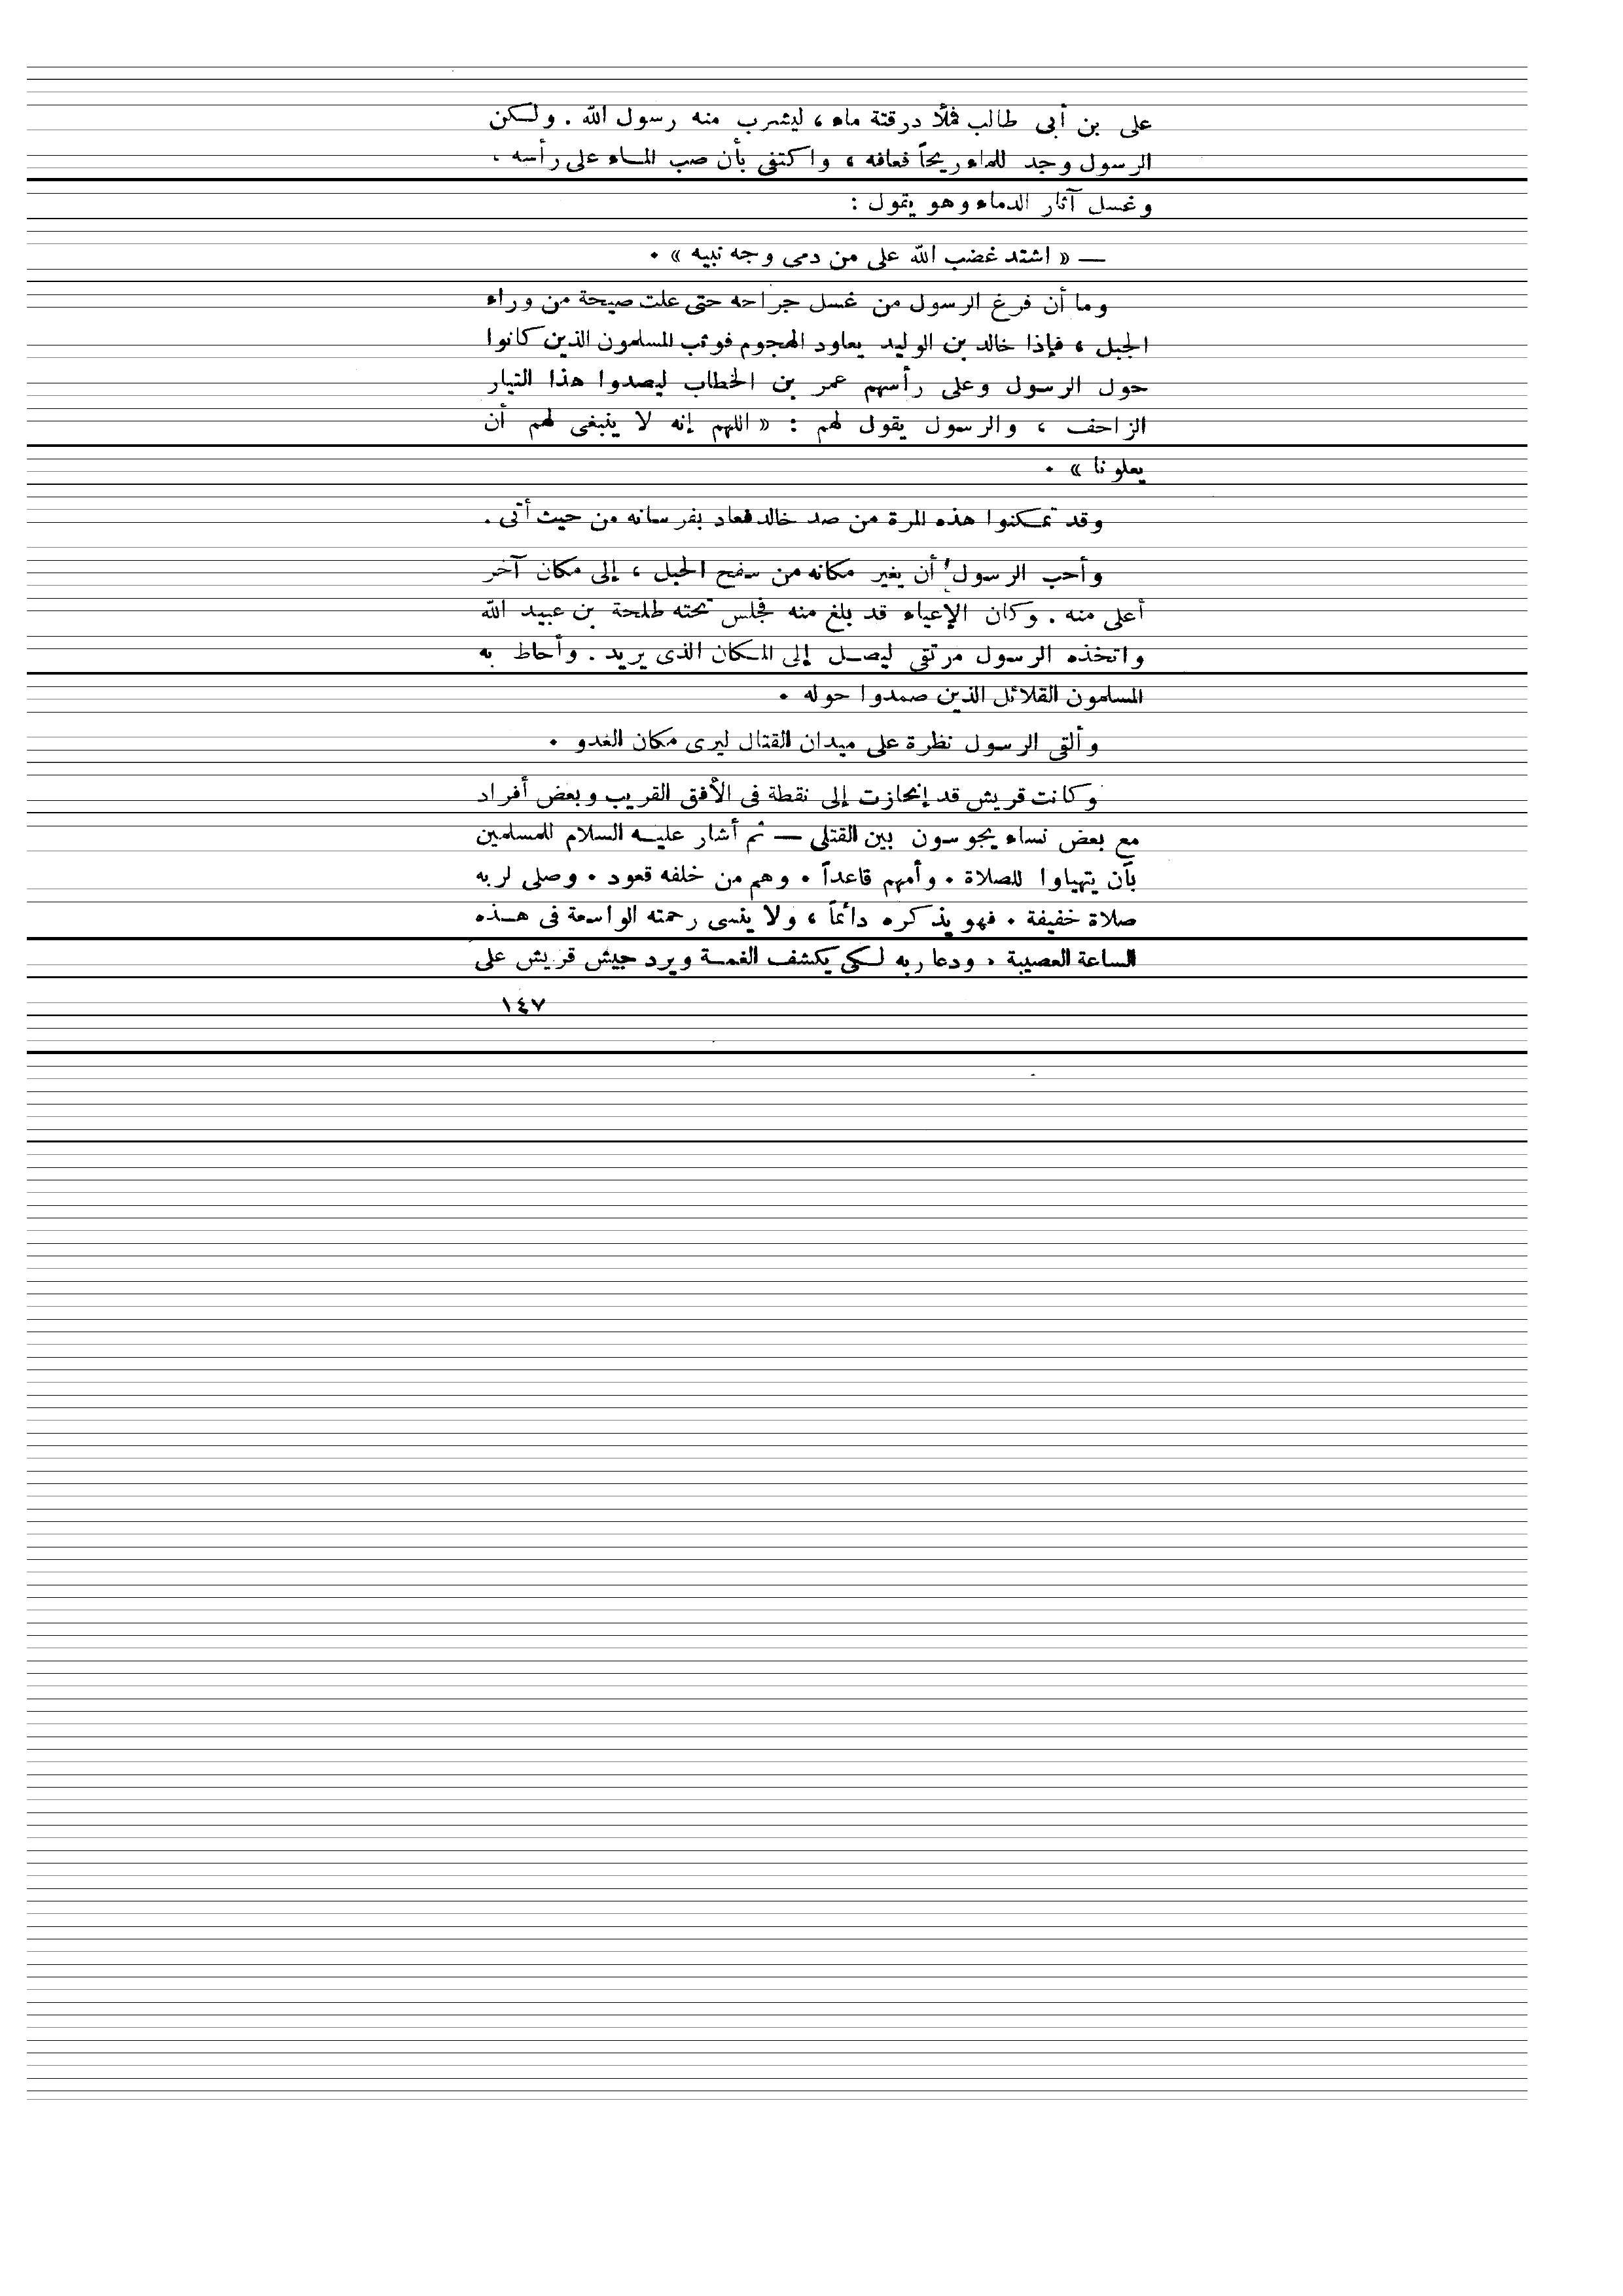 على بن أبى طالب فملأ درقتة ماء ، ليشرب منه رسول الله . ولكن
الرسول وجد للماء ريحاً فعافه ، واكتفى بأن صب الماء على رأسه .
وغسل آثار الدماء وهو يقول :
— « اشتد غضب الله على من دمى وجه نبيه » .
وما أن فرغ الرسول من غسل جراحه حتى علت صيحة من وراء
الجبل ، فإذا خالد بن الوليد يعاود الهجوم فوثب المسلمون الذين كانوا
حول الرسول وعلى رأسهم عمر بن الخطاب ليصدوا هذا التيار
الزاحف ، والرسول يقول لهم : « اللهم إنه لا ينبغى لهم أن
يعلونا » .
وقد تمكنوا هذه المرة من صد خالد فعاد بفرسانه من حيث أتى .
وأحب الرسول أن يغير مكانه من سفح الجبل ، إلى مكان آخر
أعلى منه . وكان الإعياء قد بلغ منه فجلس تحته طلحة بن عبيد الله
واتخذه الرسول مرتقى ليصل إلى المكان الذى يريد . وأحاط به
المسلمون القلائل الذين صمدوا حوله .
وألقى الرسول نظرة على ميدان القتال ليرى مكان الغدو .
وكانت قريش قد إنحازت إلى نقطة فى الأفق القريب وبعض أفراد
مع بعض نساء يجوسون بين القتلى — ثم أشار عليه السلام للمسلمين
بأن يتهياوا للصلاة . وأمهم قاعداً . وهم من خلفه قعود . وصلى لربه
صلاة خفيفة . فهو يذكره دائماً ، ولا ينسى رحمته الواسعة فى هذه
الساعة العصيبة . ودعا ربه لكى يكشف الغمة ويرد جيش قريش على
١٤٧